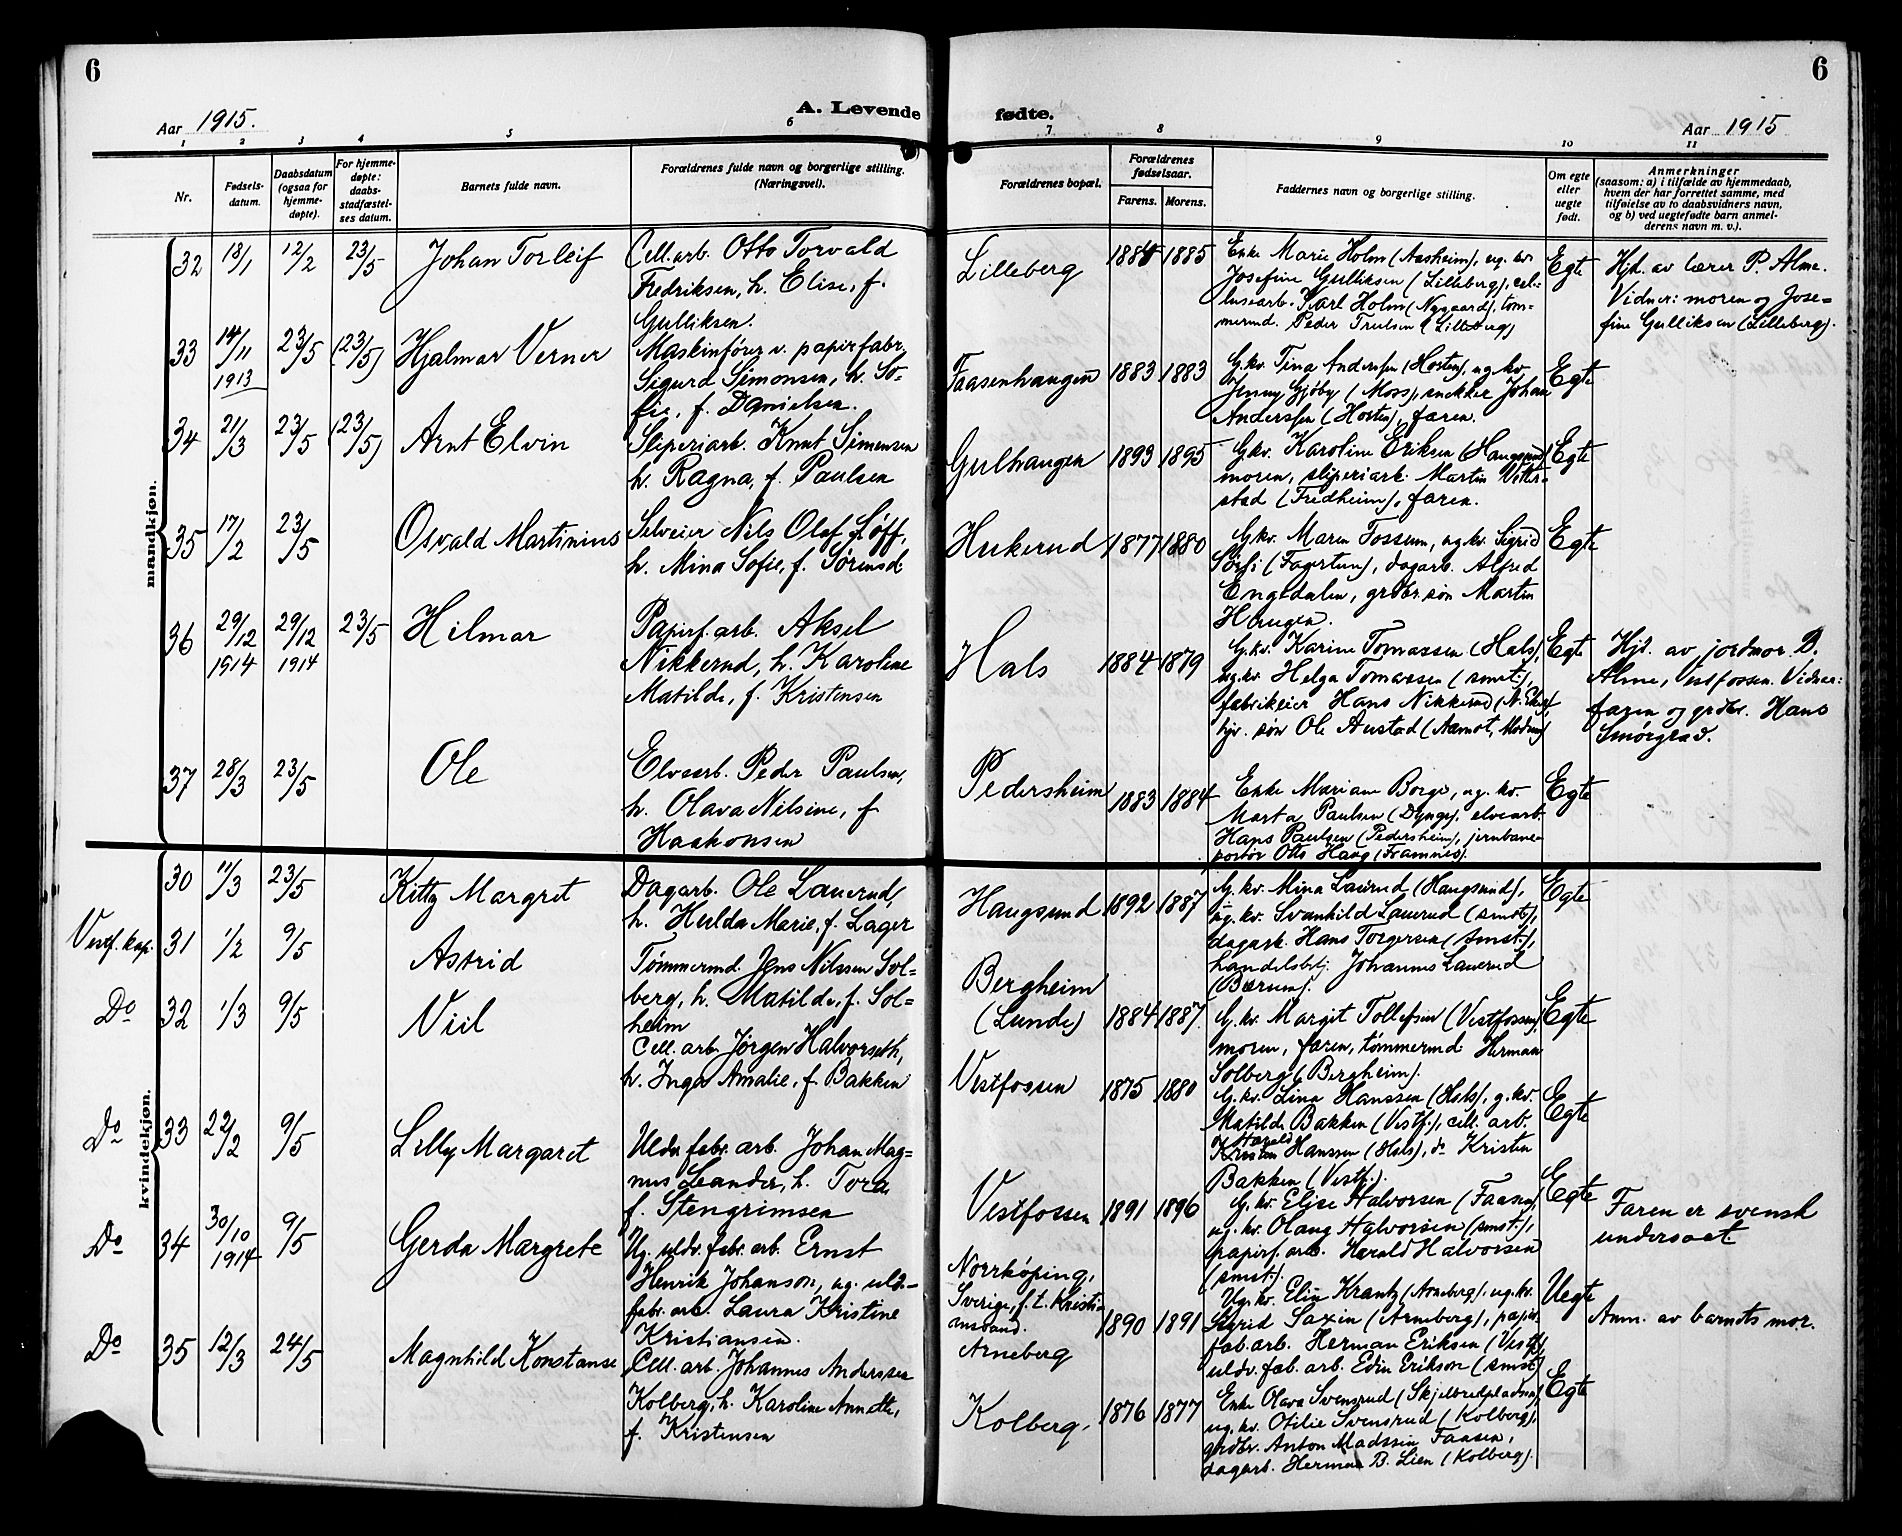 6
6
Aar 1915.
A. Levende
fødte.
Aar 1915
1 2 3 4 5 6 7 8 9 10 11
Nr.
Fødsels-
datum.
Daabsdatum
(ogsaa for
hjemme-
døpte).
For hjemme-
døpte:
daabs-
stadfæstel-
ses datum.
Barnets fulde navn.
Forældrenes fulde navn og borgerlige stilling.
(Næringsvei).
Forældrenes bopæl.
Forældrenes
fødselsaar.
Farens. Morens.
Faddernes navn og borgerlige stilling.
Om egte
eller
uegte
født.
Anmerkninger
(saasom: a) i tilfælde av hjemmedaab,
hvem der har forrettet samme, med
tilføielse av to daabsvidners navn,
og b) ved uegtefødte barn anmel-
derens navn m. v.).
mandkjøn.
32 18/1 12/2 23/5 Johan Torleif
Cell.arb. Otto Torvald
Fredriksen, h. Elise, f.
Gulliksen.
Lilleberg 1885
Enke Marie Holm (Aasheim), ug. kv.
Josefine Gulliksen (Lilleberg), cel-
lulosearb. Karl Holm (Nygaard), tøm-
mermd. Peder Trulsen (Lilleberg)
Egte
Hjd. av lærer P. Alme.
Vidner: moren og Jose-
fine Gulliksen (Lilleberg).
33 14/11 1913 23/5 (23/5) Hjalmar Verner
Maskinfører v. papirfabr.
Sigurd Simonsen, h. So-
fie, f. Danielsen.
Faasenhaugen 1883 1883
G.kv. Tina Anderssen (Horten), ug. kv.
Jenny Gjøby (Moss), snekker Johan
Anderssen (Horten), faren.
Egte
34 21/3 23/5 (23/5) Arnt Elvin
Sliperiarb. Knut Simensen
h. Ragna, f. Paulsen
Gulhaugen 1893 1895
G.kv. Karoline Eriksen (Haugsund)
moren, sliperiarb. Martin Vetter-
stad (Fredheim), faren.
Egte
35 17/2 23/5 Osvald Martinius
Selveier Nils Olaf Løff,
h. Mina Sofie, f. Sørensd.
Hukerud 1877 1880
G.kv. Maren Fossum, ug. kv. Sigrid
(Fagertun), dagarb. Alfred
Engedalen, grdbr. søn Martin
Haugen.
Egte
36 29/12 1914 29/12 1914 23/5 Hilmar
Papirf. arb. Aksel
Nikkerud, h. Karoline
Matilde, f. Kristensen
Hals 1884 1879
G.kv. Karine Tomassen (Hals),
ug.kv. Helga Tomassen (smst.),
fabrikeier Hans Nikkerud (N. Eker),
hjv. søn Ole Austad (Aamot, Modum)
Egte
Hjd. av jordmor B.
Alme, Vestfossen. Vidner:
faren og grdbr. Hans
Smørgrad.
37 28/3 23/5 Ole
Elvearb. Peder Paulsen,
h. Olava Nilsine, f.
Haakonsen
Pedersheim 1883 1884
Enke Mariane Borge, ug. kv.
Marta Paulsen (Dynge), elvearb.
Hans Paulsen (Pedersheim), jernbane-
portør Otto Haug (Framnes).
Egte
kvindekjøn.
30 11/3 23/5 Kitty Margret
Dagarb. Ole Lauerud,
h. Hulda Marie, f. Lager
Haugsund 1892 1887
G.kv. Mina Lauerud (Haugsund),
ug. kv. Svanhild Lauerud (smst.),
dagarb. Hans Torgersen (smst.),
handelsbetj. Johannes Lauerud
(Bærum).
Egte
Vestf. kap. 31 1/2 9/5 Astrid
Tømmermd. Jens Nilssen Sol-
berg, h. Matilde, f. Sol-
heim
Bergheim
(Lunde) 1884 1887
G. kv. Margit Tollefsen (Vestfossen),
moren, faren, tømmermd. Herman
Solberg (Bergheim).
Egte
Do 32 1/3 9/5 Viil
Cell. arb. Jørgen Halvorseth,
h. Inga Amalie, f. Bakken
Vestfossen 1875 1880
G. kv. Lina Hanssen (Hals), g. kv.
Matilde Bakken (Vestf.), cell. arb.
Harald
Kristen Hanssen (Hals), do Kristen
Bakken (Vestf.).
Egte
Do 33 22/2 9/5 Lilly Margaret
Uldv. fabr. arb. Johan Mag-
nus Leander, h. Tora
f. Stengrimsen
Vestfossen 1891 1896
G. kv. Elise Halvorsen (Faasen),
ug. kv. Olaug Halvorsen (smst.),
papirf. arb. Harald Halvorsen
(smst.).
Egte
Faren er svensk
undersaat
Do 34 30/10 1914 9/5 Gerda Margrete
Ug. uldv. fabr. arb. Ernst
Henrik Johanson, ug. uldv.
fabr. arb. Laura Kristine
Kristiansen.
Norrköping,
Sverige, f. t. Kristi-
ansand.
Arneberg
1890 1891
Ug. kv. Elin Krantz (Arneberg), ug. kv.
Sigrid Saxin (Arneberg), papir-
fab. arb. Herman Eriksen (Vestf.),
uldv. fab. arb. Edin Erikson (smst.)
Uegte
Anm. av barnets mor.
Do 35 12/3 24/5 Magnhild Konstanse
Cell. arb. Johannes Anderssen
Kolberg, h. Karoline Annette,
f. Kristensen
Kolberg. 1876 1877
Enke Olava Svensrud (Skjelbredpladsen),
ug. kv. Otilie Svensrud (Kolberg),
grdbr. Anton Madssen Faasen,
dagarb. Herman B. Lien (Kolberg).
Egte